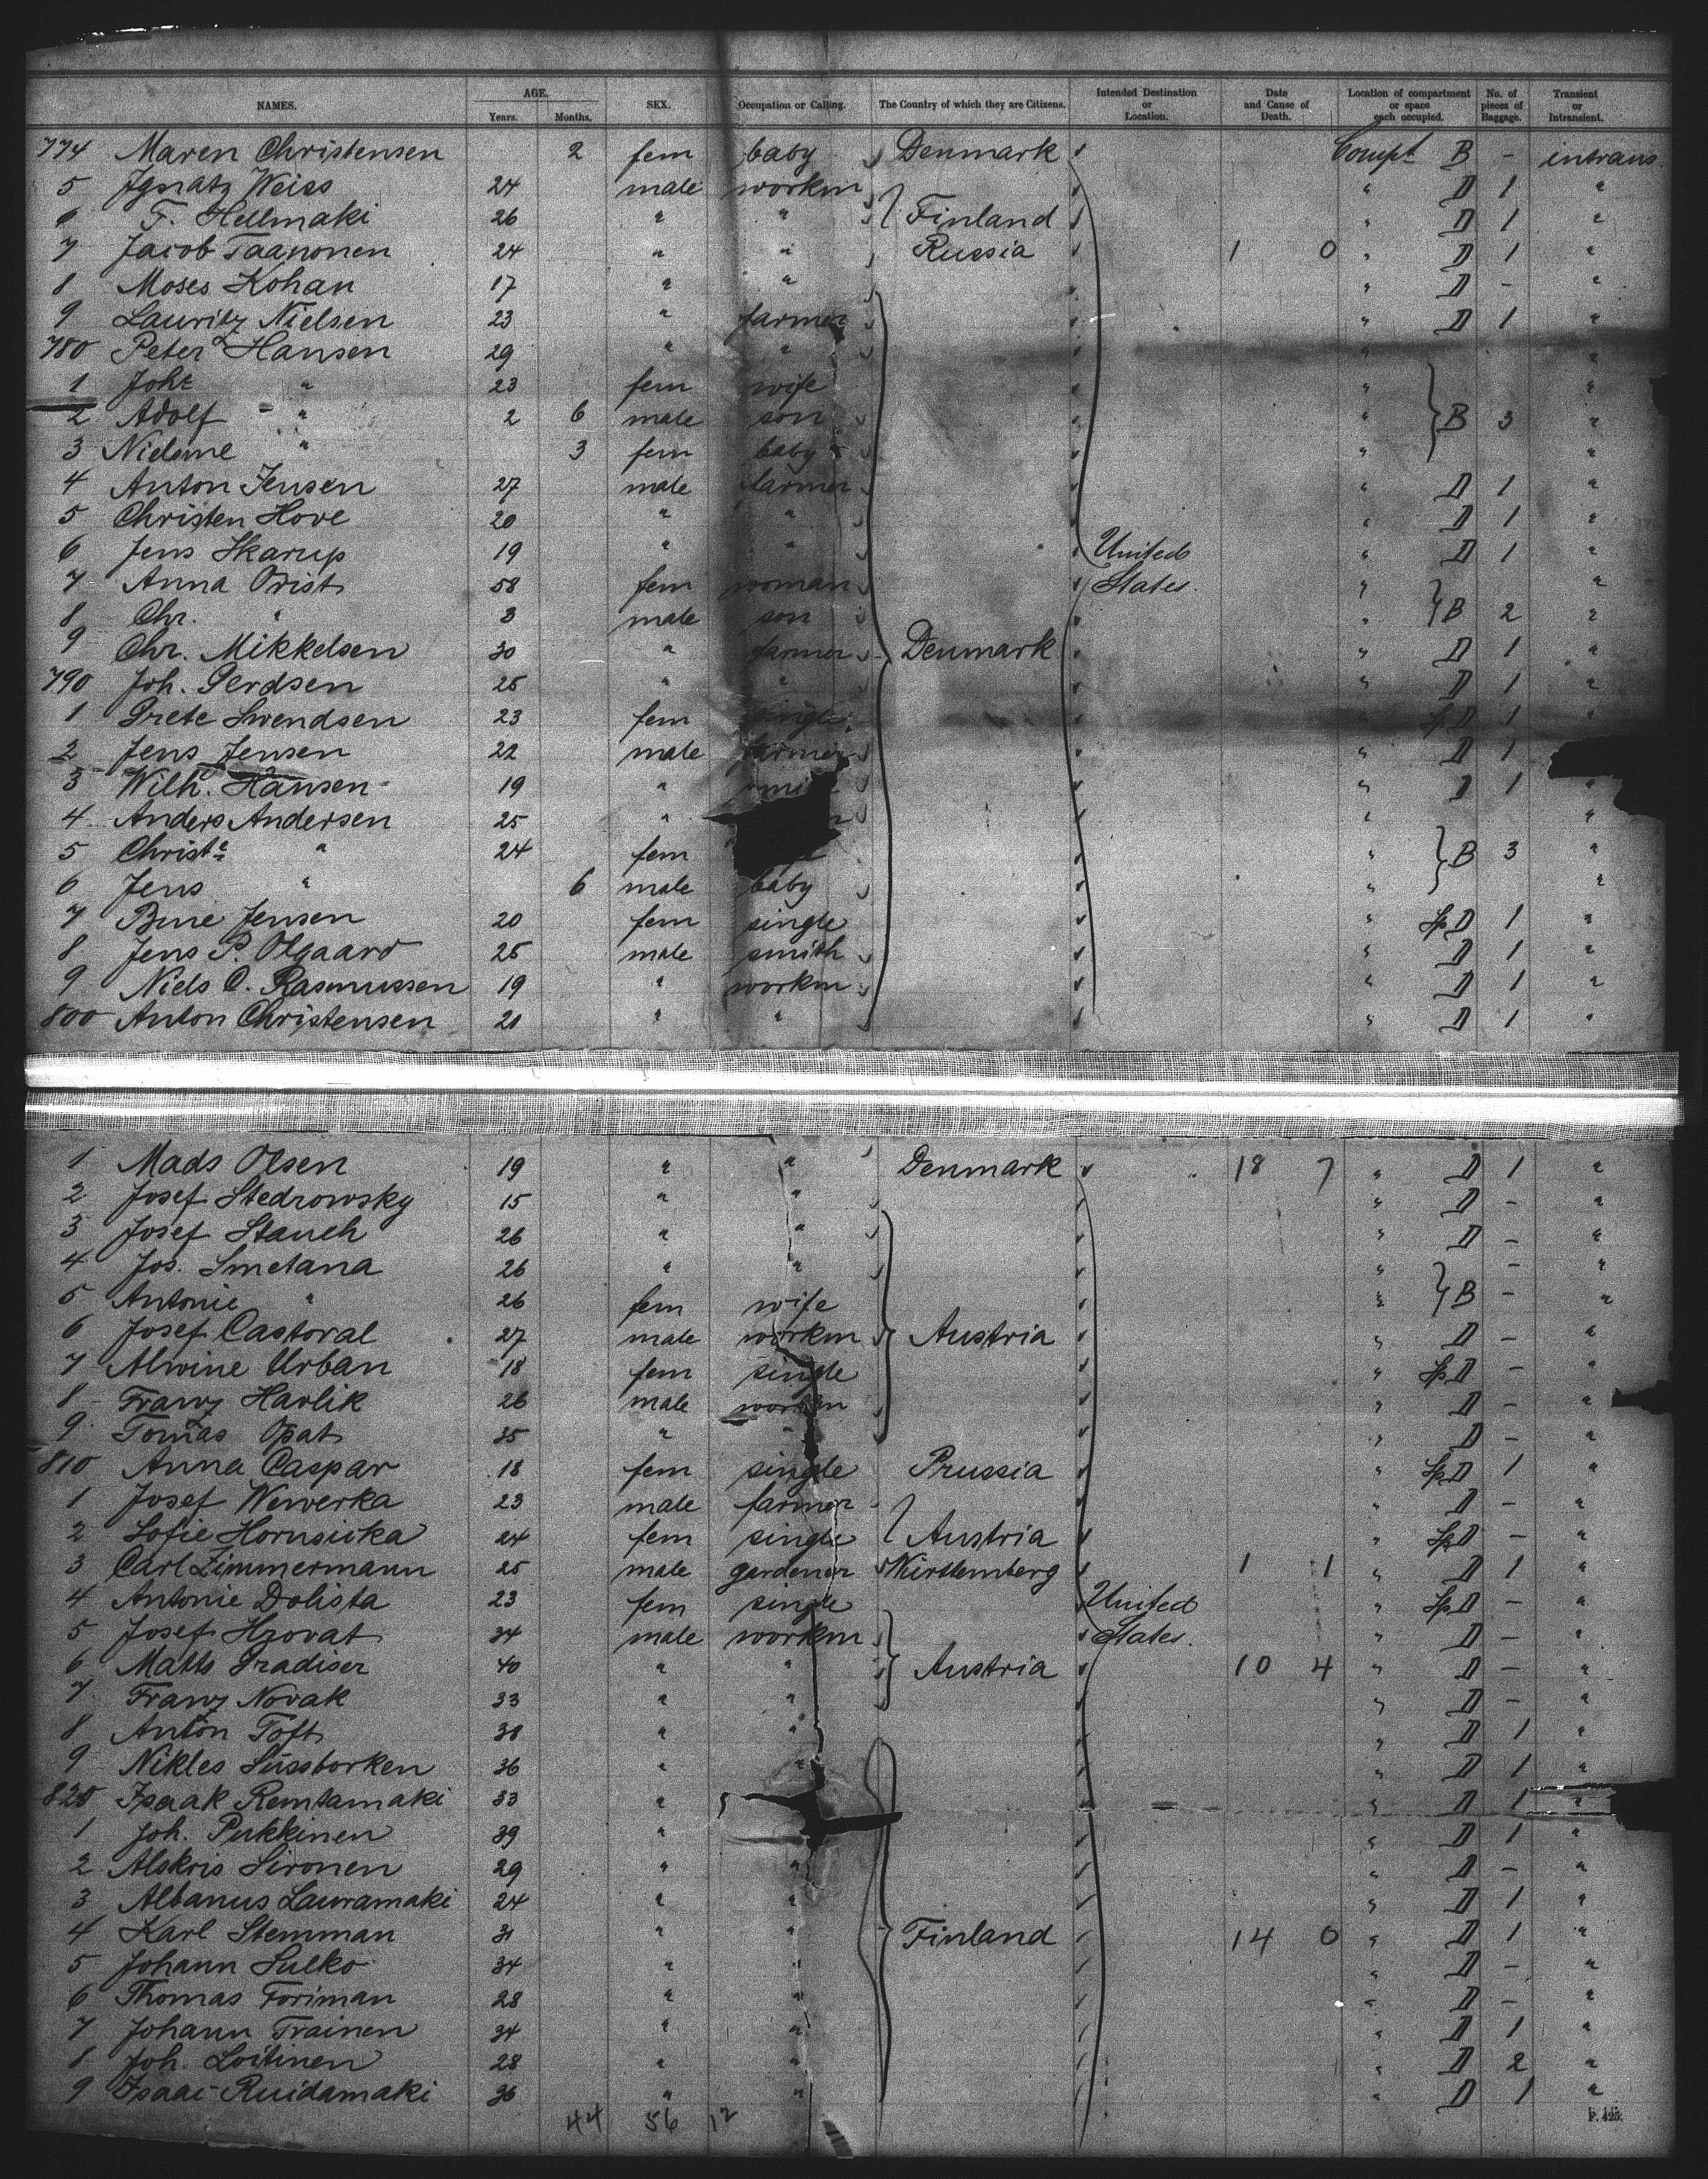 NAMES. AGE. Years. Months. SEX. Occupation or Calling. The Country of which they are Citizens. Intended Destination or Location. Date and Cause of Death. Location of compartment or space each occupied. No. of pieces of Baggage. Transient or Intransient.
774 Maren Christensen 2 fem baby Denmark Compt B - intrans
5 Ignatz Weiss 24 male workm " D 1 "
6 F. Hellmaki 26 " " Finland " D 1 "
7 Jacob Taanonen 24 " " Russia 1 0 " D 1 "
8 Moses Kohan 17 " " " D - "
9 Lauritz Nielsen 23 " farmer " D 1 "
780 Peter Hansen 29 " " " "
1 Johe " 23 fem wife " "
2 Adolf " 2 6 male son " B 3 "
3 " 3 fem baby " "
4 Anton Jensen 27 male farmer " D 1 "
5 Christen Hove 20 " " " D 1 "
6 Jens Skarup 19 " " United " D 1 "
7 Anna Qvist 58 fem woman States. " "
8 Chr. " 3 male son " B 2 "
9 Chr. Mikkelsen 30 " farmer Denmark " D 1 "
790 Joh. Gerdsen 25 " " " D 1 "
1 Grete Swendsen 23 fem single " Sp D 1 "
2 Jens Jensen 22 male farmer " D 1
3 Wilh. Hansen 19 " " D 1 "
4 Anders Andersen 25 " " "
5 Christe " 24 fem " B 3 "
6 Jens " 6 male baby " "
7 Bine Jensen 20 fem single " Sp D 1 "
8 Jens P. Olgaard 25 male smith " D 1 "
9 Niels C. Rasmussen 19 " workm " D 1 "
800 Anton Christensen 20 " " " D 1 "
1 Mads Olsen 19 " " Denmark 18 7 " D 1 "
2 Josef Stedrowsky 15 " " " D - "
3 Josef Stauch 26 " " " D - "
4 Jos. Smetana 26 " " " - "
5 Antonie " 26 fem wife " B - "
6 Josef Castoral 27 male workm Austria " D - "
7 Alwine Urban 18 fem single " Sp D - "
8 Franz Havlik 26 male workm " D - "
9 Tomas Opat 35 " " " D - "
810 Anna Caspar 18 fem single Prussia " Sp D 1 "
1 Josef Wewerka 23 male farmer " D - "
2 Sofie Hornsicka 24 fem single Austria " Sp D - "
3 Carl Zimmermann 25 male gardener Württemberg 1 1 " D 1 "
4 Antonie Dolista 23 fem single United " Sp D - "
5 Josef Hrovat 34 male workm States. " D - "
6 Matts Gradiser 40 " " Austria 10 4 " D - "
7 Franz Novak 33 " " " D - "
8 Anton Toft 38 " " " D 1 "
9 Nikles Süssborken 36 " " " D 1 "
820 Isaak Remtamaki 33 " " D 1 "
1 Joh. Pukkinen 39 " " D 1 "
2 Alskris Sironen 29 " " " D - "
3 Albanus Lauramaki 24 " " " D 1 "
4 Karl Stemman 31 " " Finland 14 0 " D 1 "
5 Johann Sulko 34 " " " D - "
6 Thomas Foriman 28 " " " D - "
7 Johann Trainen 34 " " " D 1 "
8 Joh. Loitinen 28 " " " D 2 "
9 Isaac Ruidamaki 36 " " " D 1 "
44 56 12
P. 425